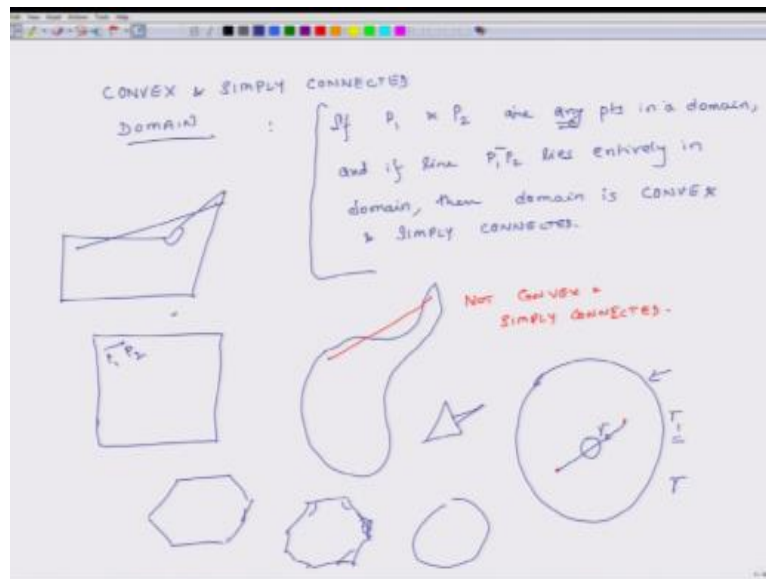 CONVEX & SIMPLY CONNECTED
DOMAIN :
If P1 & P2 are any pts in a domain,
and if line P1P2 lies entirely in
domain, then domain is CONVEX
& SIMPLY CONNECTED.
NOT CONVEX &
SIMPLY CONNECTED.
P1 P2